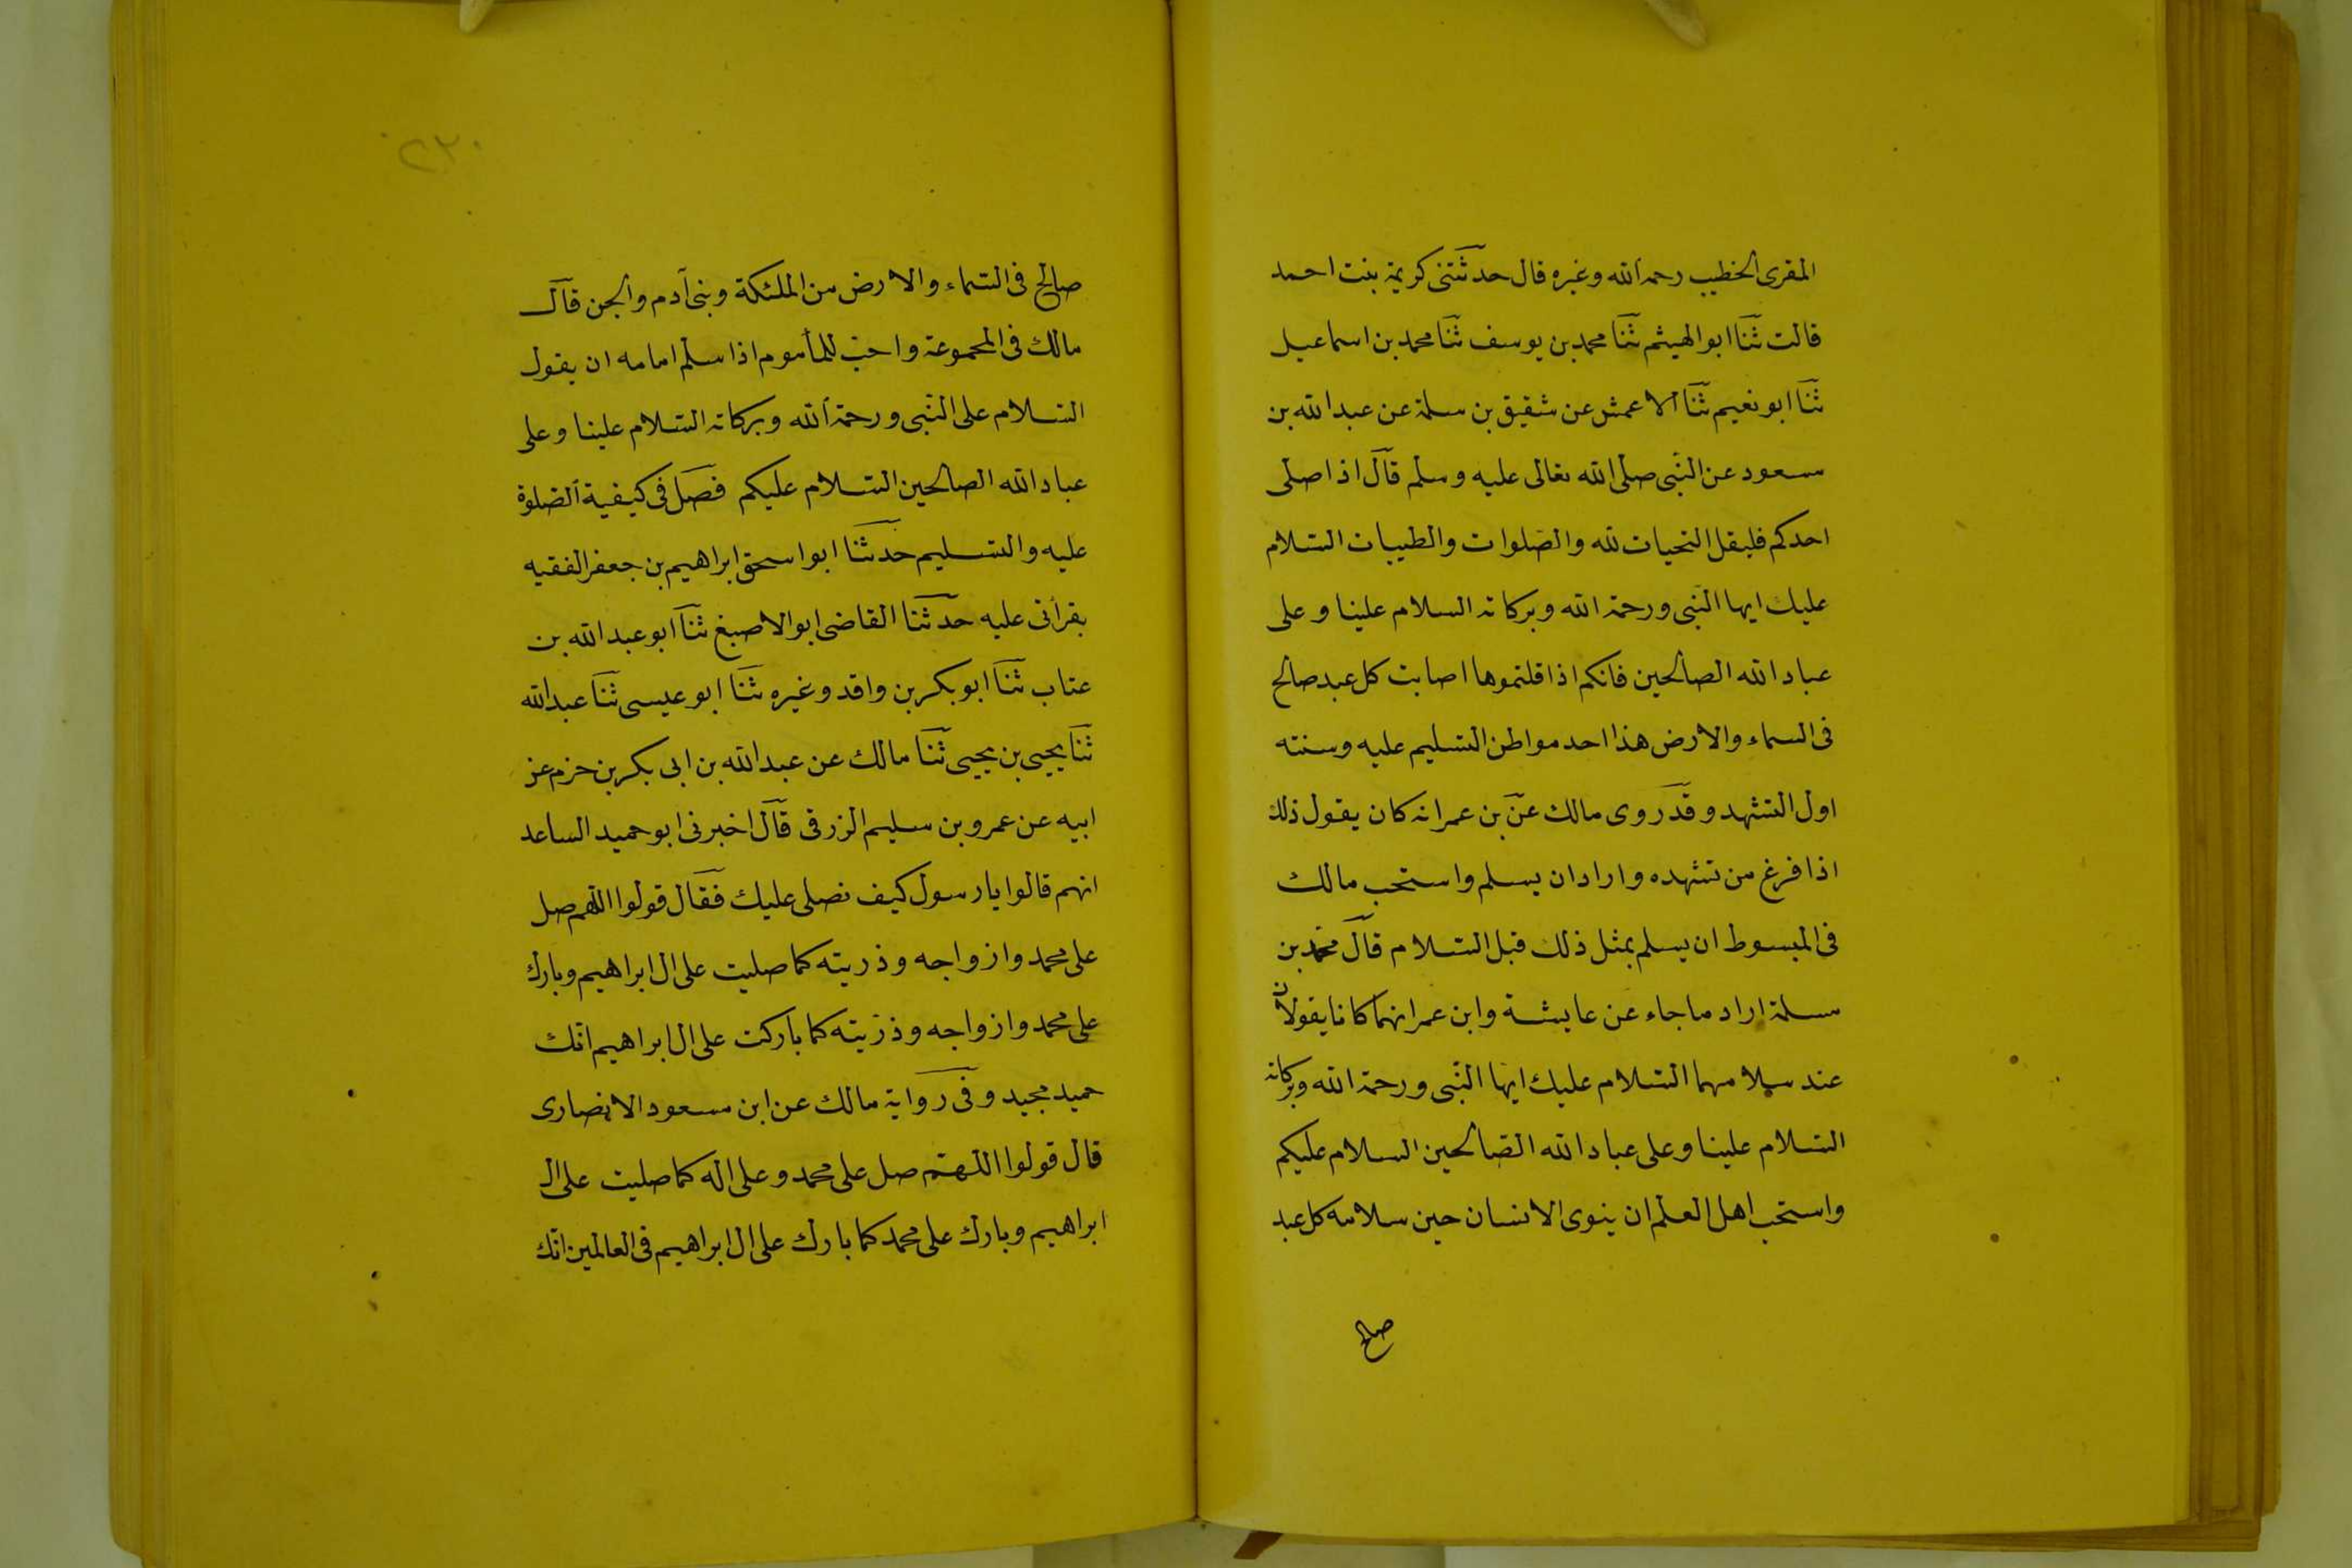 المقرى الخطيب رحمه الله وغيره قال حدثتنى كريمة بنت احمد
قالت ثنا ابوالهيثم ثنا محمد بن يوسف ثنا محمد بن اسماعيل
ثنا ابونعيم ثنا الاعمش عن شقيق بن سلمة عن عبدالله بن
مسعود عن النبى صلى الله تعالى عليه وسلم قال اذا صلى
احدكم فليقل التحيات لله والصلوات والطيبات السلام
عليك ايها النبى ورحمة الله وبركاته السلام علينا وعلى
عباد الله الصالحين فانكم اذا قلتموها اصابت كل عبد صالح
فى السماء والارض هذا احد مواطن التسليم عليه وسنته
اول التشهد وقد روى مالك عن بن عمر انه كان يقول ذلك
اذا فرغ من تشهده واراد ان يسلم واستحب مالك
فى المبسوط ان يسلم بمثل ذلك قبل السلام قال محمد بن
مسلمة اراد ما جاء عن عايشة وابن عمر انهما كانا يقولان
عند سلامهما السلام عليك ايها النبى ورحمة الله وبركاته
السلام علينا وعلى عباد الله الصالحين السلام عليكم
واستحب اهل العلم ان ينوى الانسان حين سلامه كل عبد
صالح
٢٣٠
صالح فى السماء والارض من الملئكة وبنى آدم والجن قال
مالك فى المجموعة واحب للمأموم اذا سلم امامه ان يقول
السلام على النبى ورحمة الله وبركاته السلام علينا وعلى
عباد الله الصالحين السلام عليكم فصل فى كيفية الصلوة
عليه والتسليم حدثنا ابواسحق ابراهيم بن جعفر الفقيه
بقرأتى عليه حدثنا القاضى ابوالاصبغ ثنا ابوعبدالله بن
عتاب ثنا ابوبكر بن واقد وغيره ثنا ابوعيسى ثنا عبدالله
ثنا يحيى بن يحيى ثنا مالك عن عبدالله بن ابى بكر بن حزم عن
ابيه عن عمرو بن سليم الزرقى قال اخبرنى ابوحميد الساعد
انهم قالوا يارسول كيف نصلى عليك فقال قولوا اللهم صل
على محمد وازواجه وذريته كما صليت على ال ابراهيم وبارك
على محمد وازواجه وذريته كما باركت على ال ابراهيم انك
حميد مجيد وفى رواية مالك عن ابن مسعود الانصارى
قال قولوا اللهم صل على محمد وعلى اله كما صليت على ال
ابراهيم وبارك على محمد كما بارك على ال ابراهيم فى العالمين انك